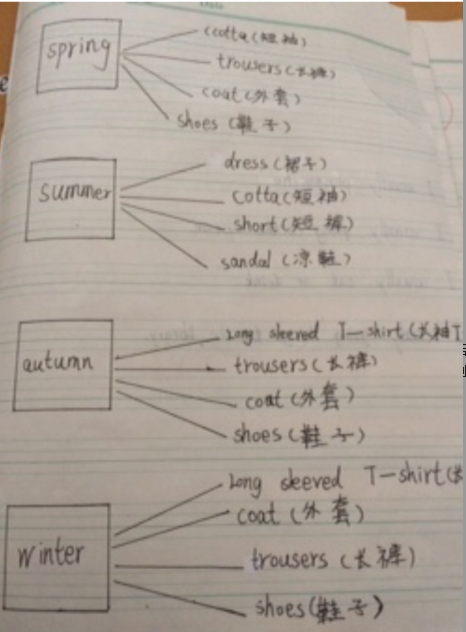 spring
cotta(短袖)
trousers(长裤)
coat(外套)
shoes(鞋子)
summer
dress(裙子)
cotta(短袖)
short(短裤)
sandal(凉鞋)
autumn
Long sleeved T-shirt(长袖T
trousers(长裤)
coat(外套)
shoes(鞋子)
winter
Long sleeved T-shirt(长
coat(外套)
trousers(长裤)
shoes(鞋子)